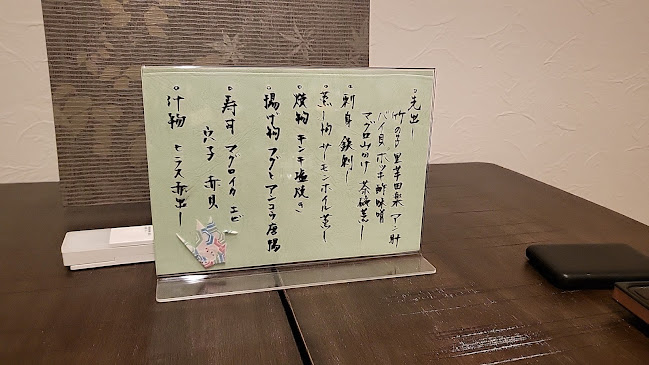 。先出し
竹の子 里芋田楽 アン肝
バイ貝 ホッキ酢味噌
マグロ山かけ 茶碗蒸し
。刺身 鉄刺し
。蒸し物 サーモンホイル蒸し
。焼物 キンキ塩焼き
。揚げ物 フグトアンコウ唐揚
。寿司 マグロ イカ エビ
穴子 赤貝
。汁物 ヒラス赤出し